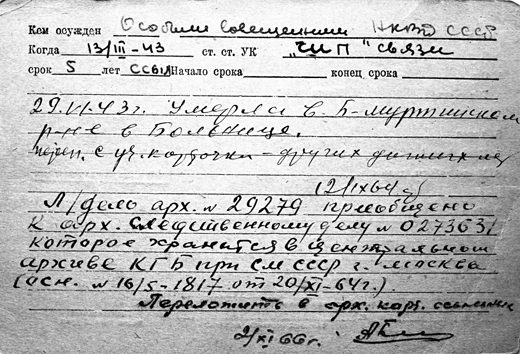 Кем осужден Особым совещанием НКВД СССР
Когда 13/III-43 ст. ст. УК "ШП" связи
срок 5 лет ссыл Начало срока конец срока
29.VI.43 г. Умерла в Б-муртинском
р-не в больнице.
перен. с уч. карточки - других данных нет
12/IX64 г.
Л/дело арх. № 29279 приобщено
к арх. следственному делу №
которое хранится в центральном
архиве КГБ при СМ СССР г. Москва
(осн. № 16/5-1817 от 20/XI-64 г.).
Переложить в арх. карт. ссыльных
2/XI 66 г.